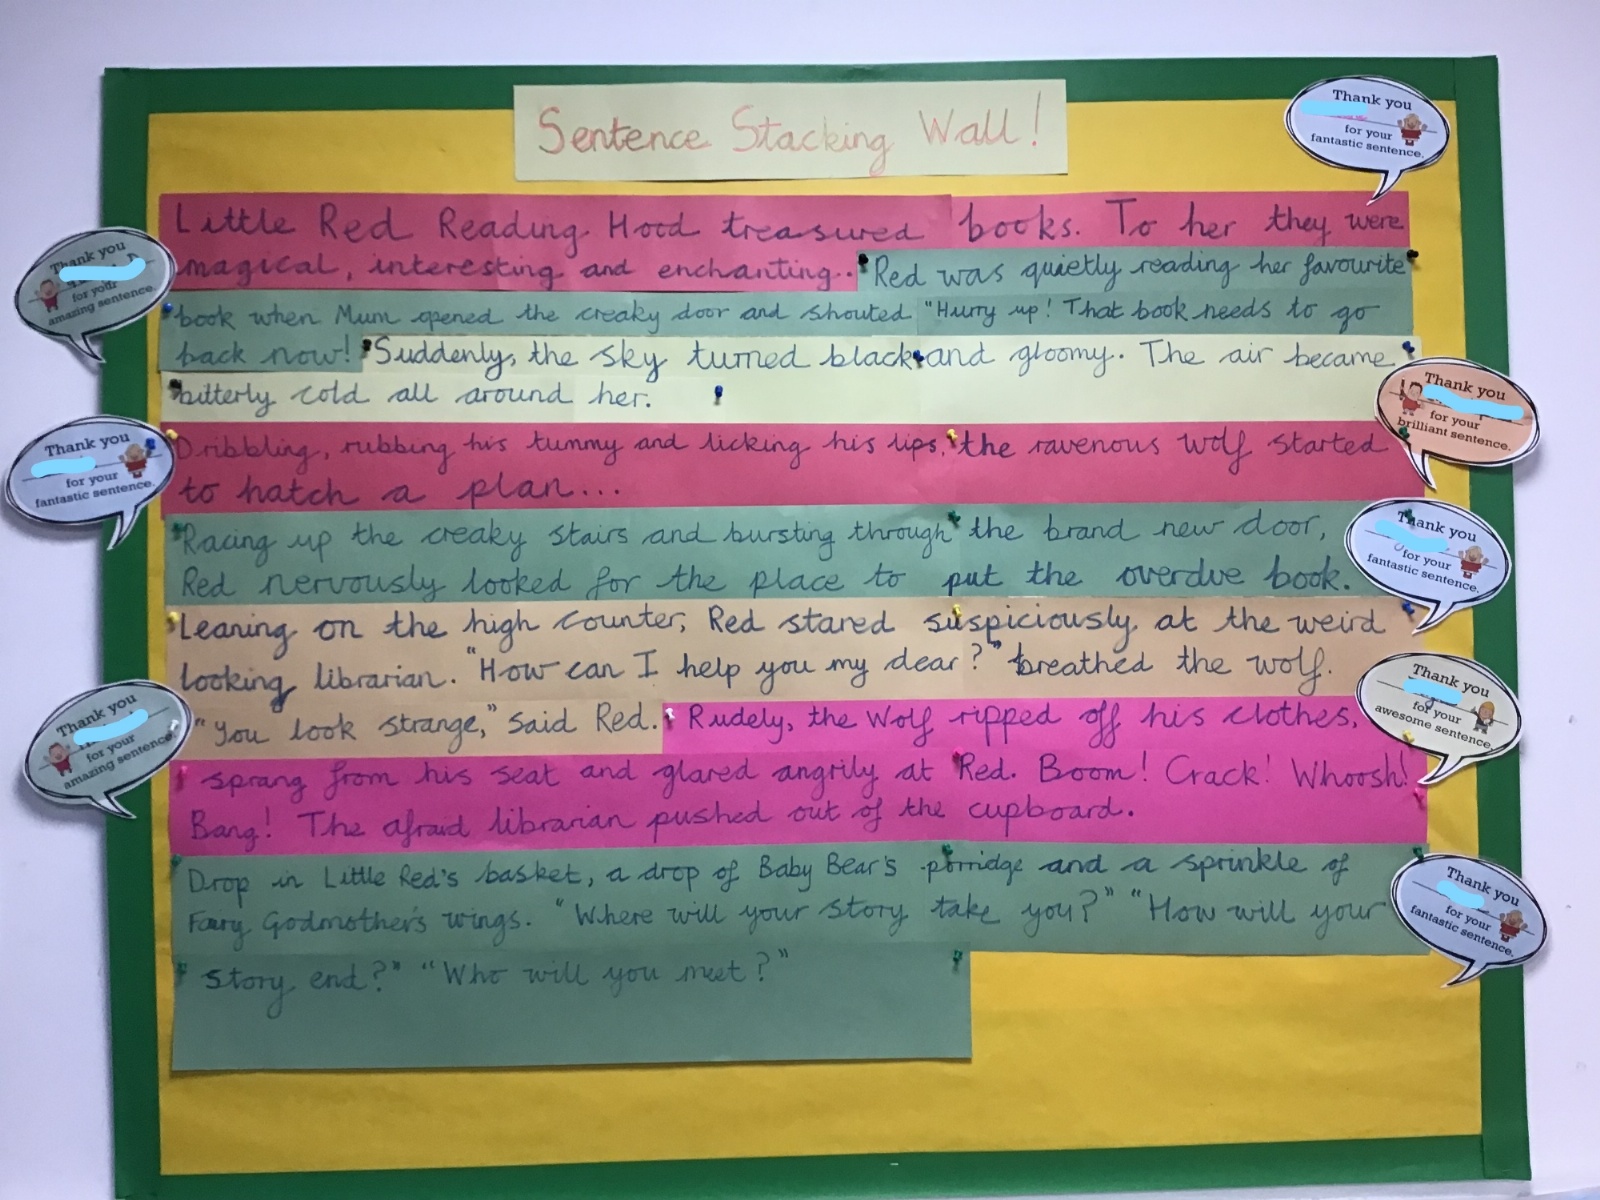 Sentence Stacking Wall!
Little Red Reading Hood treasured books. To her they were
magical, interesting and enchanting.. Red was quietly reading her favourite
book when Mum opened the creaky door and shouted "Hurry up! That book needs to go
back now! Suddenly, the sky turned black and gloomy. The air became
bitterly cold all around her.
Dribbling, rubbing his tummy and licking his lips, the ravenous wolf started
to hatch a plan...
Racing up the creaky stairs and bursting through the brand new door,
Red nervously looked for the place to put the overdue book.
Leaning on the high counter, Red stared suspiciously at the weird
looking librarian. "How can I help you my dear?" breathed the wolf.
"You look strange," said Red. Rudely, the Wolf ripped off his clothes,
sprang from his seat and glared angrily at Red. Boom! Crack! Whoosh!
Bang! The afraid librarian pushed out of the cupboard.
Drop in Little Red's basket, a drop of Baby Bear's porridge and a sprinkle of
Fairy Godmother's wings. "Where will your story take you?" "How will your
story end?" "Who will you meet?"
Thank you
for your
fantastic sentence.
Thank you
for your
amazing sentence.
Thank you
for your
brilliant sentence.
Thank you
for your
fantastic sentence.
Thank you
for your
fantastic sentence.
Thank you
for your
awesome sentence.
Thank you
for your
amazing sentence.
Thank you
for your
fantastic sentence.